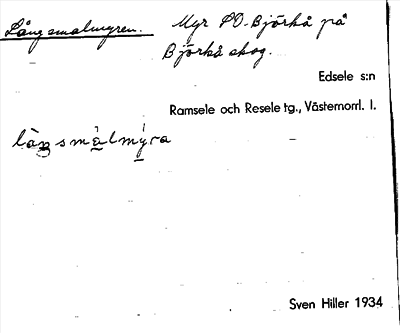 Långsmalmyren. Myr SO. Björkå på
Björkå skog.
Edsele s:n
Ramsele och Resele tg., Västernorrl. l.
låŋsmàlmýra
Sven Hiller 1934